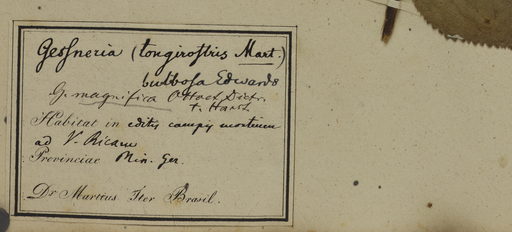 Gesneria (longirostris Mart.)
bulbosa Edwards
G. magnifica Otto et Dietr.
t. Hanst.
Habitat in editis campis montanis
ad V. Ricam
Provinciae Min. Ger.
Dr Martius Iter Brasil.